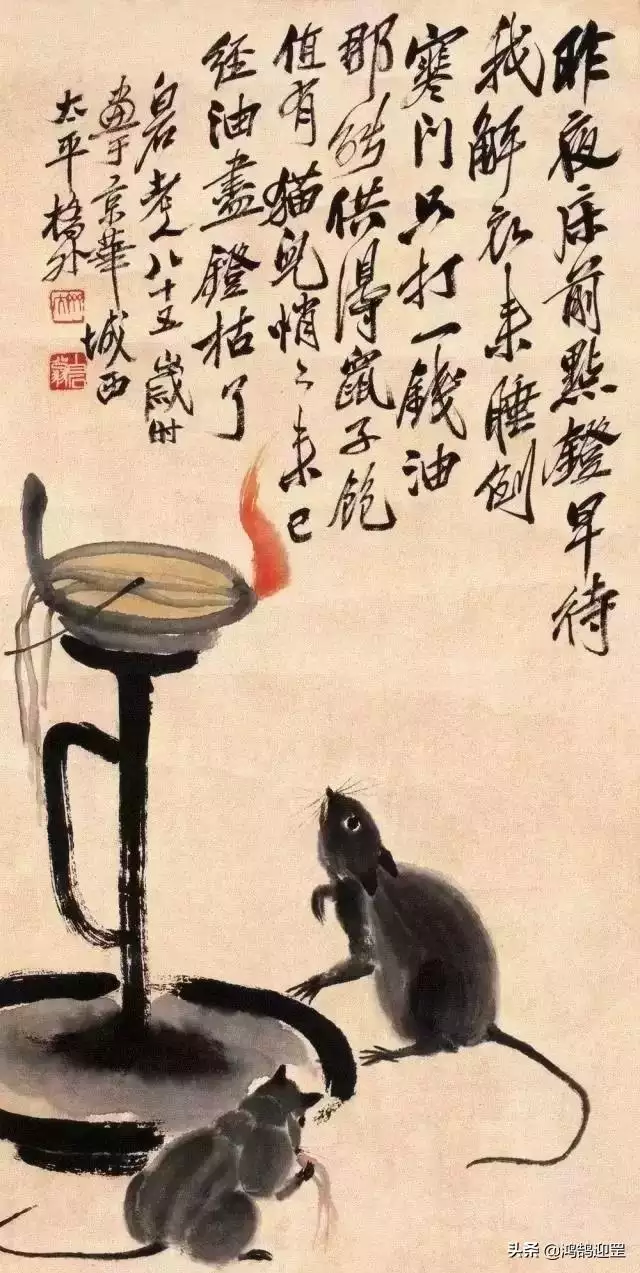 昨夜床前點鐙早待
我解衣来睡倒
寒門只打一錢油
那能供得鼠子飽
值有猫兒悄〻来已
經油盡鐙枯了
白石老人八十五歲时
畫于京華城西
太平橋外
头条 @鸿鹄迎罡